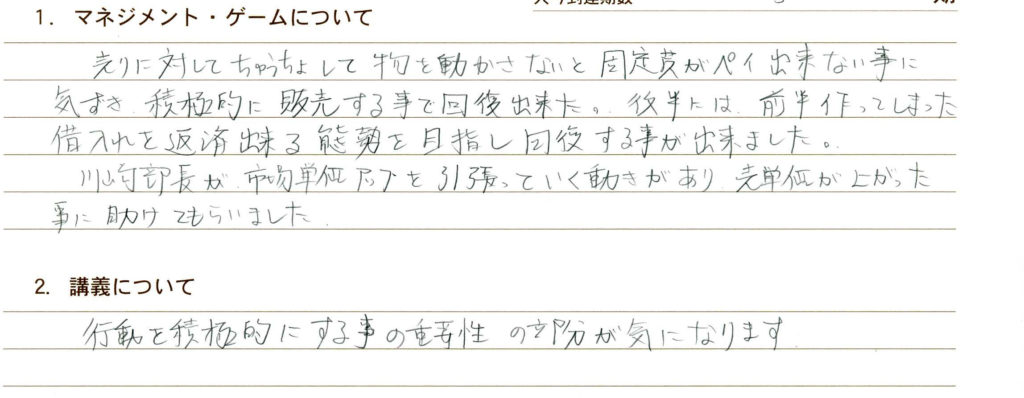 1. マネジメント・ゲームについて
売りに対してちゅうちょして物を動かさないと固定費がペイ出来ない事に
気ずき 積極的に販売する事で回復出来た。後半には、前半作ってしまった
借入れを返済出来る態勢を目指し回復する事が出来ました。
川崎部長が 市場単価アップを引張っていく動きがあり 売単価が上がった
事に助けてもらいました
2. 講義について
行動を積極的にする事の重要性 の部分が気になります